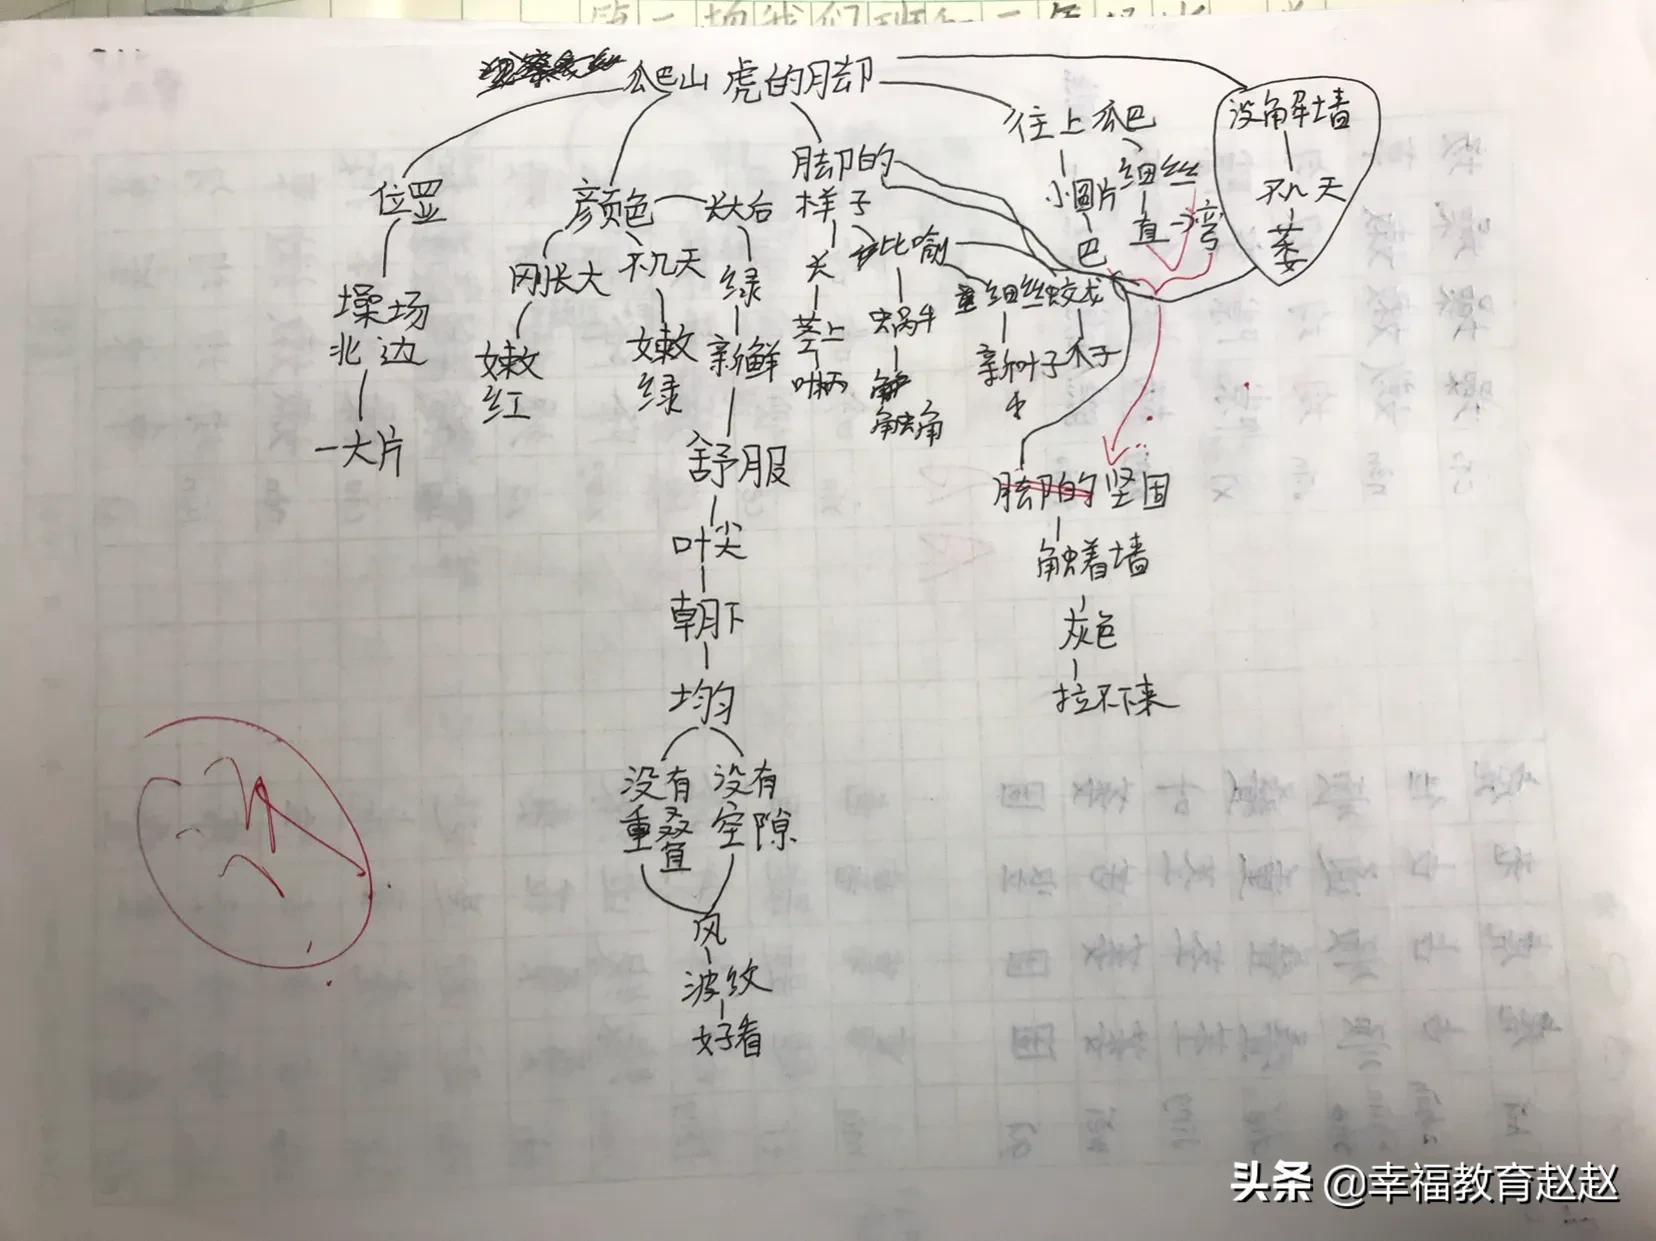 爬山虎的脚
位置
操场
北边
一大片
颜色
刚长大
嫩
红
不几天
嫩
绿
长大后
绿
新鲜
舒服
叶尖
朝下
均匀
没有
重叠
没有
空隙
风
波纹
好看
脚的
样子
长
茎上
叶柄
比喻
蜗牛
触角
细丝
新叶子
蛟龙
爪子
往上爬
小圆片
巴
细丝
直→弯
没触墙
不几天
萎
脚的坚固
触着墙
灰色
拉不下来
头条 @幸福教育赵赵